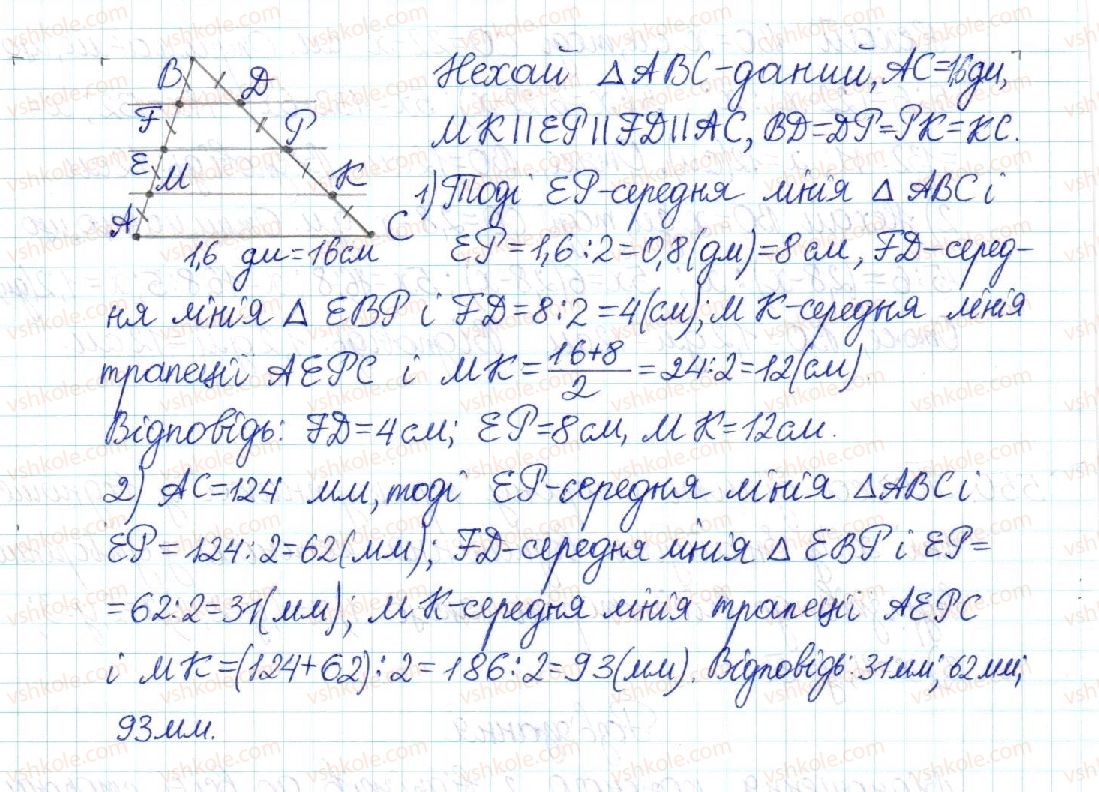 B
D
F
P
E
M
K
A
C
1,6 дм=16см
Нехай △ABC-даний, AC=16дм,
MK||EP||FD||AC, BD=DP=PK=KC.
1) Тоді EP-середня лінія △ABC і
EP=1,6:2=0,8(дм)=8см, FD-серед-
ня лінія △EBP і FD=8:2=4(см); MK-середня лінія
трапеції AEPC і MK=16+8/2=24:2=12(см).
Відповідь: FD=4см; EP=8см, MK=12см.
2) AC=124 мм, тоді EP-середня лінія △ABC і
EP=124:2=62(мм); FD-середня лінія △EBP і EP=
=62:2=31(мм); MK-середня лінія трапеції AEPC
і MK=(124+62):2=186:2=93(мм). Відповідь: 31мм; 62мм;
93мм.